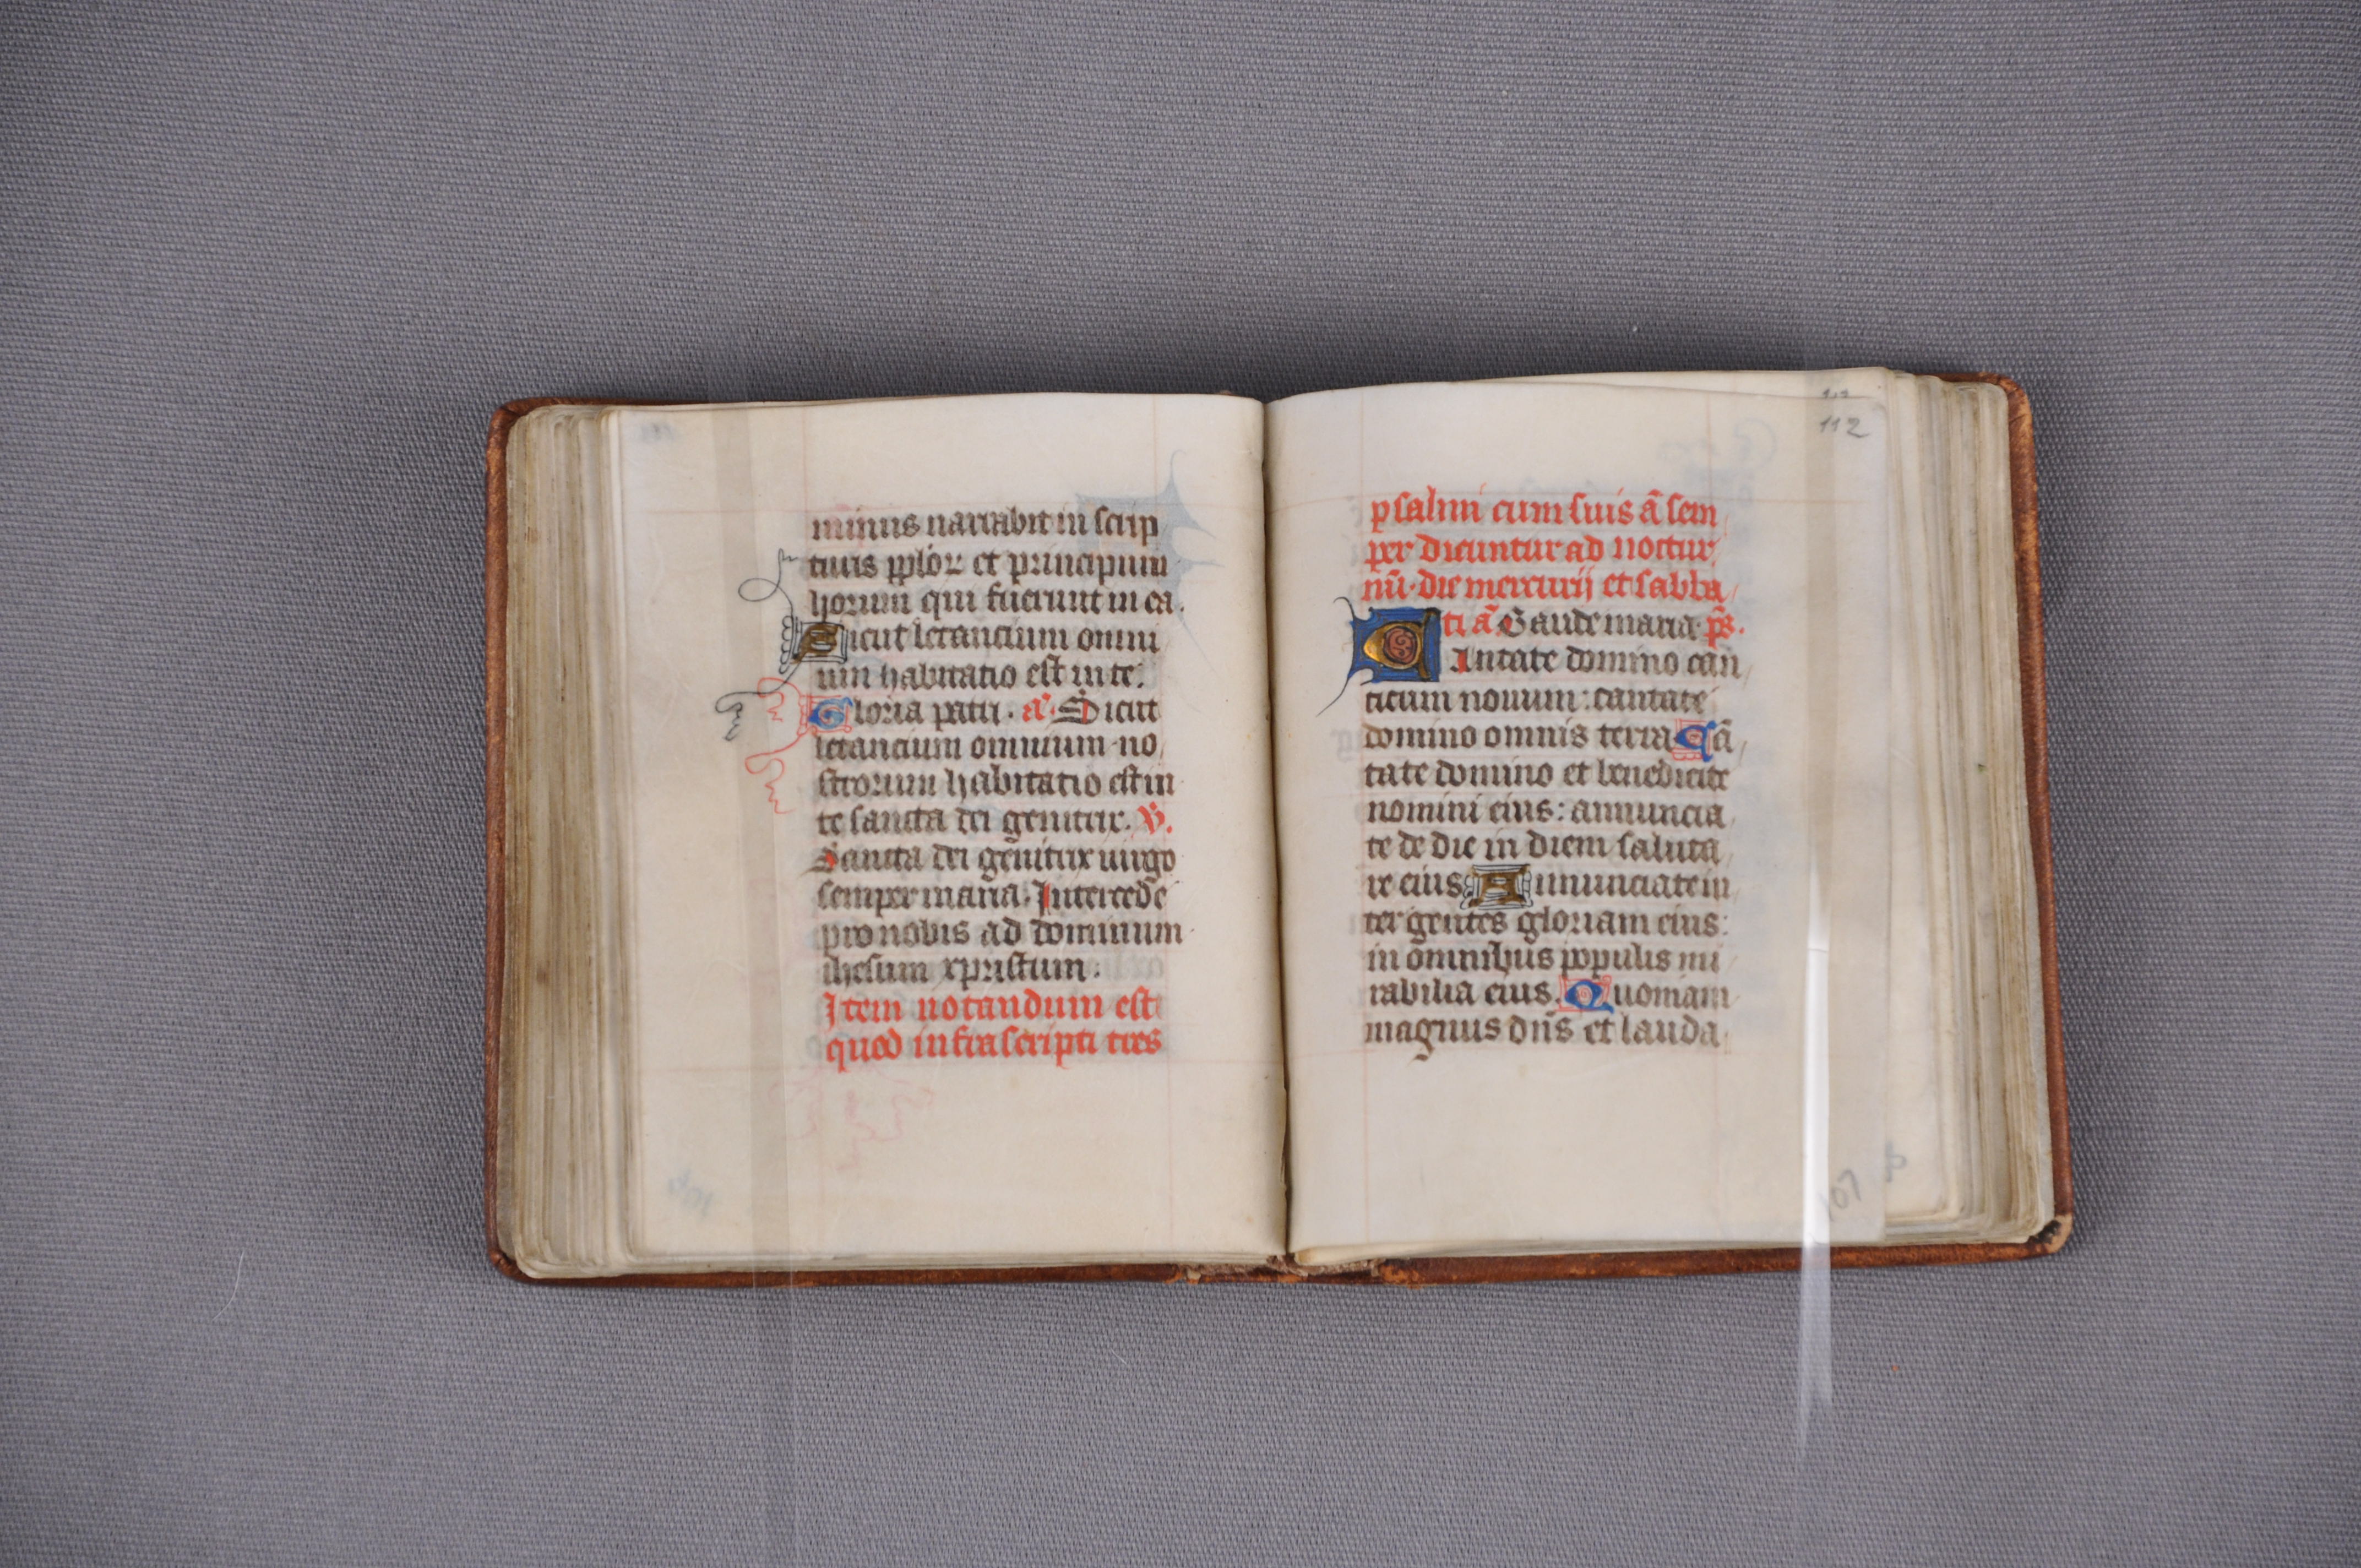 minus narrabit in scrip
turis pplōꝝ et principum
horum qui fuerunt in ea.
Sicut letancium omni
um habitatio est in te.
Gloria patri. a᷑. Sicut
letancium omnium no
strorum habitatio est in
te sancta dei genitrix. V̷.
Sancta dei genitrix uirgo
semper maria. Intercede
pro nobis ad dominum
ihesum xpristum.
Item notandum est
quod infrascripti tres
112
psalmi cum suis ā sem
per dicuntur ad noctur
nū. die mercurij et sabba
ti ā Gaude maria p̄s.
CAntate domino can
ticum nouum: cantate
domino omnis terra Cā
tate domino et benedicite
nomini eius: annuncia
te de die in diem saluta
re eius Annunciate in
ter gentes gloriam eius:
in omnibus populis mi
rabilia eius. Quoniam
magnus dn̄s et lauda